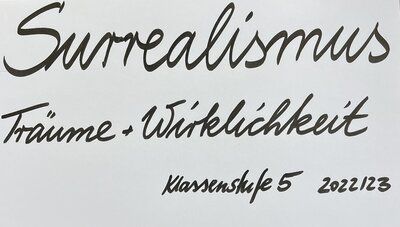 Surrealismus
Träume + Wirklichkeit
Klassenstufe 5 2022/23